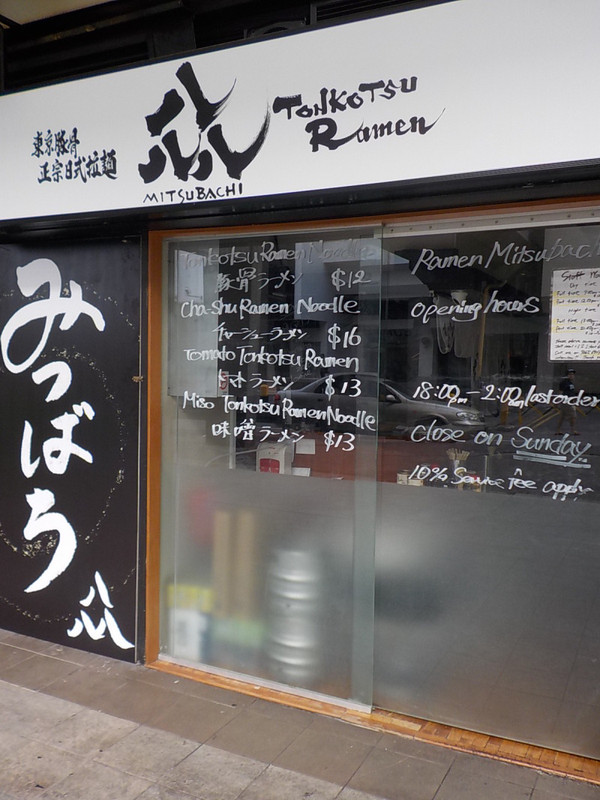 東京豚骨
正宗日式拉麺
MITSUBACHI
TONKOTSU
Ramen
みつばち
Tonkotsu Ramen Noodle
豚骨ラーメン $12
Cha-Shu Ramen Noodle
チャーシューラーメン $16
Tomato Tonkotsu Ramen
トマトラーメン $13
Miso Tonkotsu Ramen Noodle
味噌ラーメン $13
Ramen Mitsubachi
opening hours
18:00pm - 2:00am last order
close on Sunday
10% Service fee apply
Staff